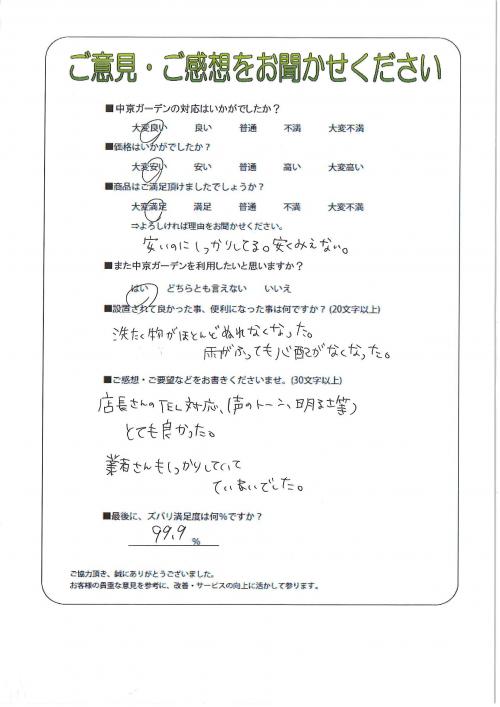 ご意見・ご感想をお聞かせください
■中京ガーデンの対応はいかがでしたか?
大変良い 良い 普通 不満 大変不満
■価格はいかがでしたか?
大変安い 安い 普通 高い 大変高い
■商品はご満足頂けましたでしょうか?
大変満足 満足 普通 不満 大変不満
⇒よろしければ理由をお聞かせください。
安いのにしっかりしてる。安くみえない。
■また中京ガーデンを利用したいと思いますか?
はい どちらとも言えない いいえ
■設置されて良かった事、便利になった事は何ですか?(20文字以上)
洗たく物がほとんどぬれなくなった。
雨がふっても心配がなくなった。
■ご感想・ご要望などをお書きくださいませ。(30文字以上)
店長さんのTEL対応、(声のトーン、明るさ等)
とても良かった。
業者さんもしっかりしていて
ていねいでした。
■最後に、ズバリ満足度は何%ですか?
99.9 %
ご協力頂き、誠にありがとうございました。
お客様の貴重な意見を参考に、改善・サービスの向上に活かして参ります。